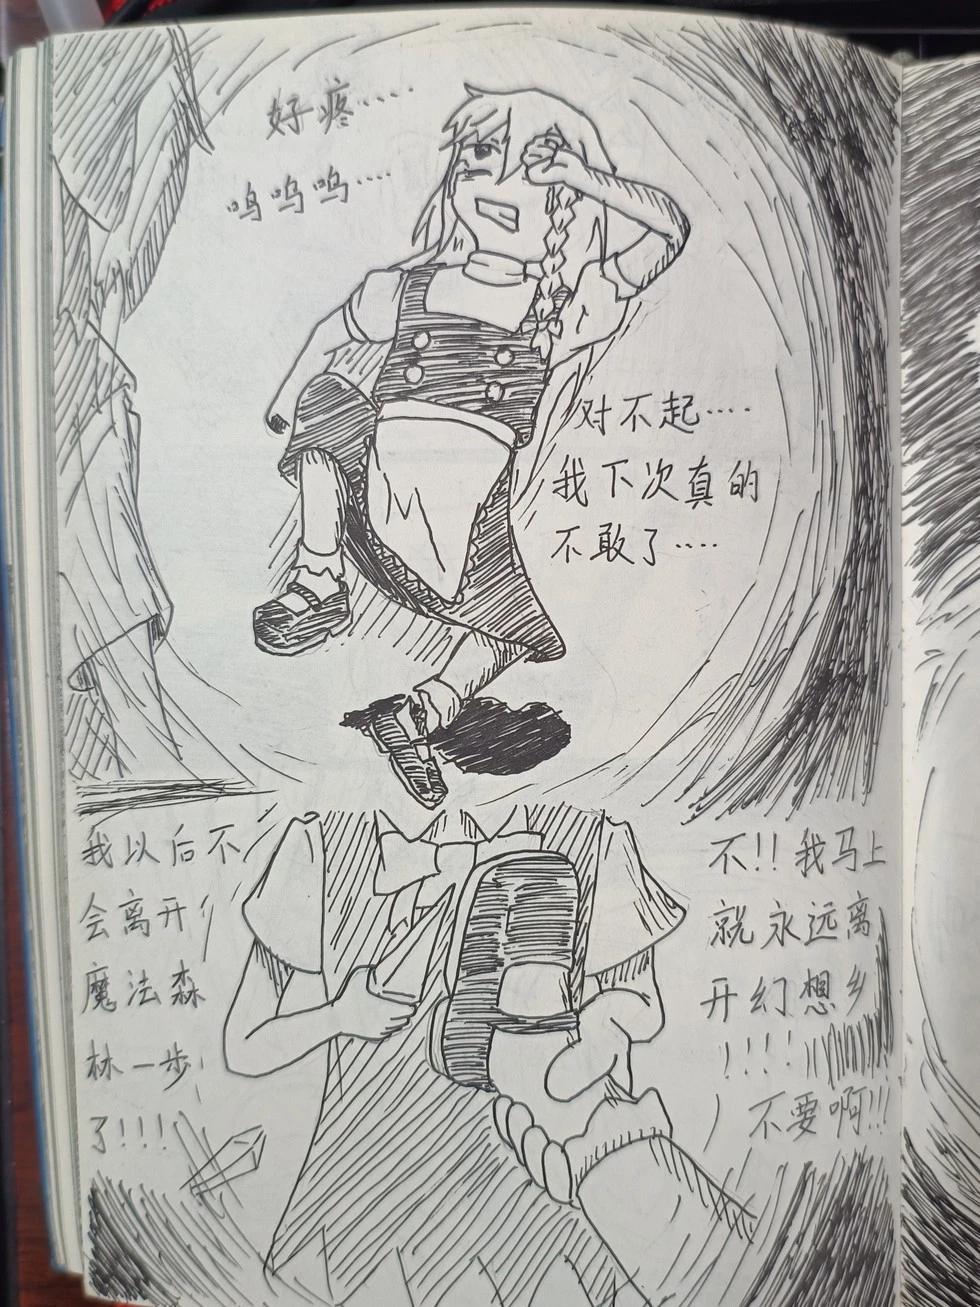 好疼····
呜呜呜····
对不起····
我下次真的
不敢了····
我以后不
会离开
魔法森
林一步
了!!!
不!!我马上
就永远离
开幻想乡
!!!!
不要啊!!!